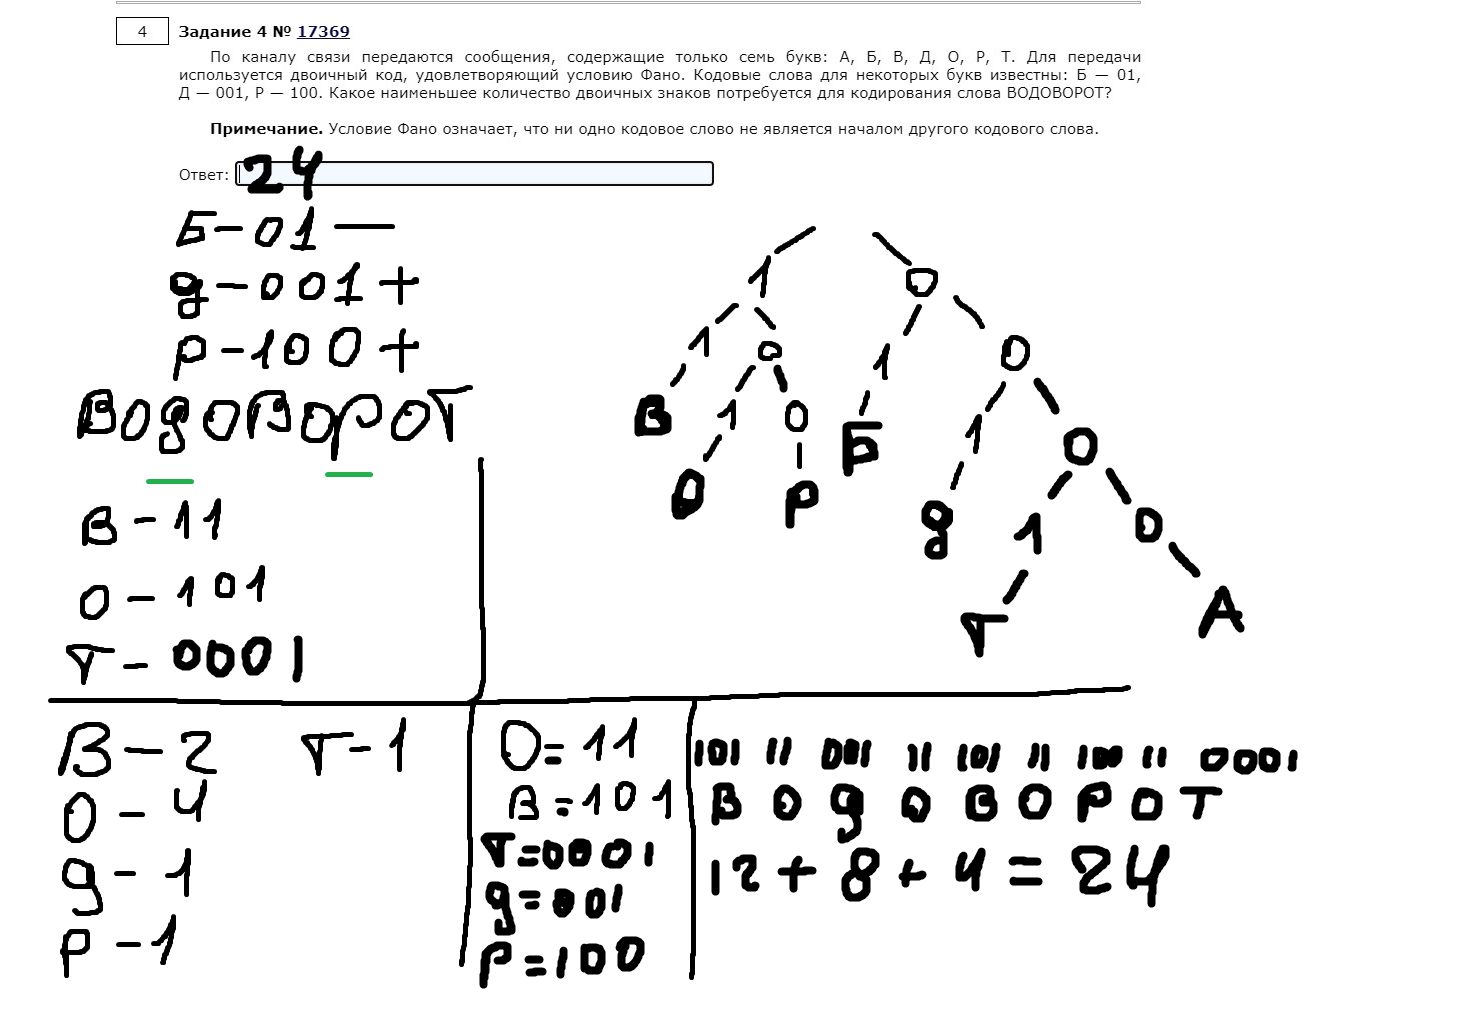 4 Задание 4 № 17369
По каналу связи передаются сообщения, содержащие только семь букв: А, Б, В, Д, О, Р, Т. Для передачи
используется двоичный код, удовлетворяющий условию Фано. Кодовые слова для некоторых букв известны: Б — 01,
Д — 001, Р — 100. Какое наименьшее количество двоичных знаков потребуется для кодирования слова ВОДОВОРОТ?
Примечание. Условие Фано означает, что ни одно кодовое слово не является началом другого кодового слова.
Ответ: 24
Б – 01 —
д – 001 +
Р – 100 +
ВОдОВОРОТ
В – 11
О – 101
Т – 0001
1 0
1 0 1 0
В 1 0 Б 1 0
О Р д 1 0
Т А
В – 2 Т – 1
О – 4
д – 1
Р – 1
О = 11
В = 101
Т = 0001
д = 001
Р = 100
101 11 001 11 101 11 100 11 0001
В О д О В О Р О Т
12 + 8 + 4 = 24